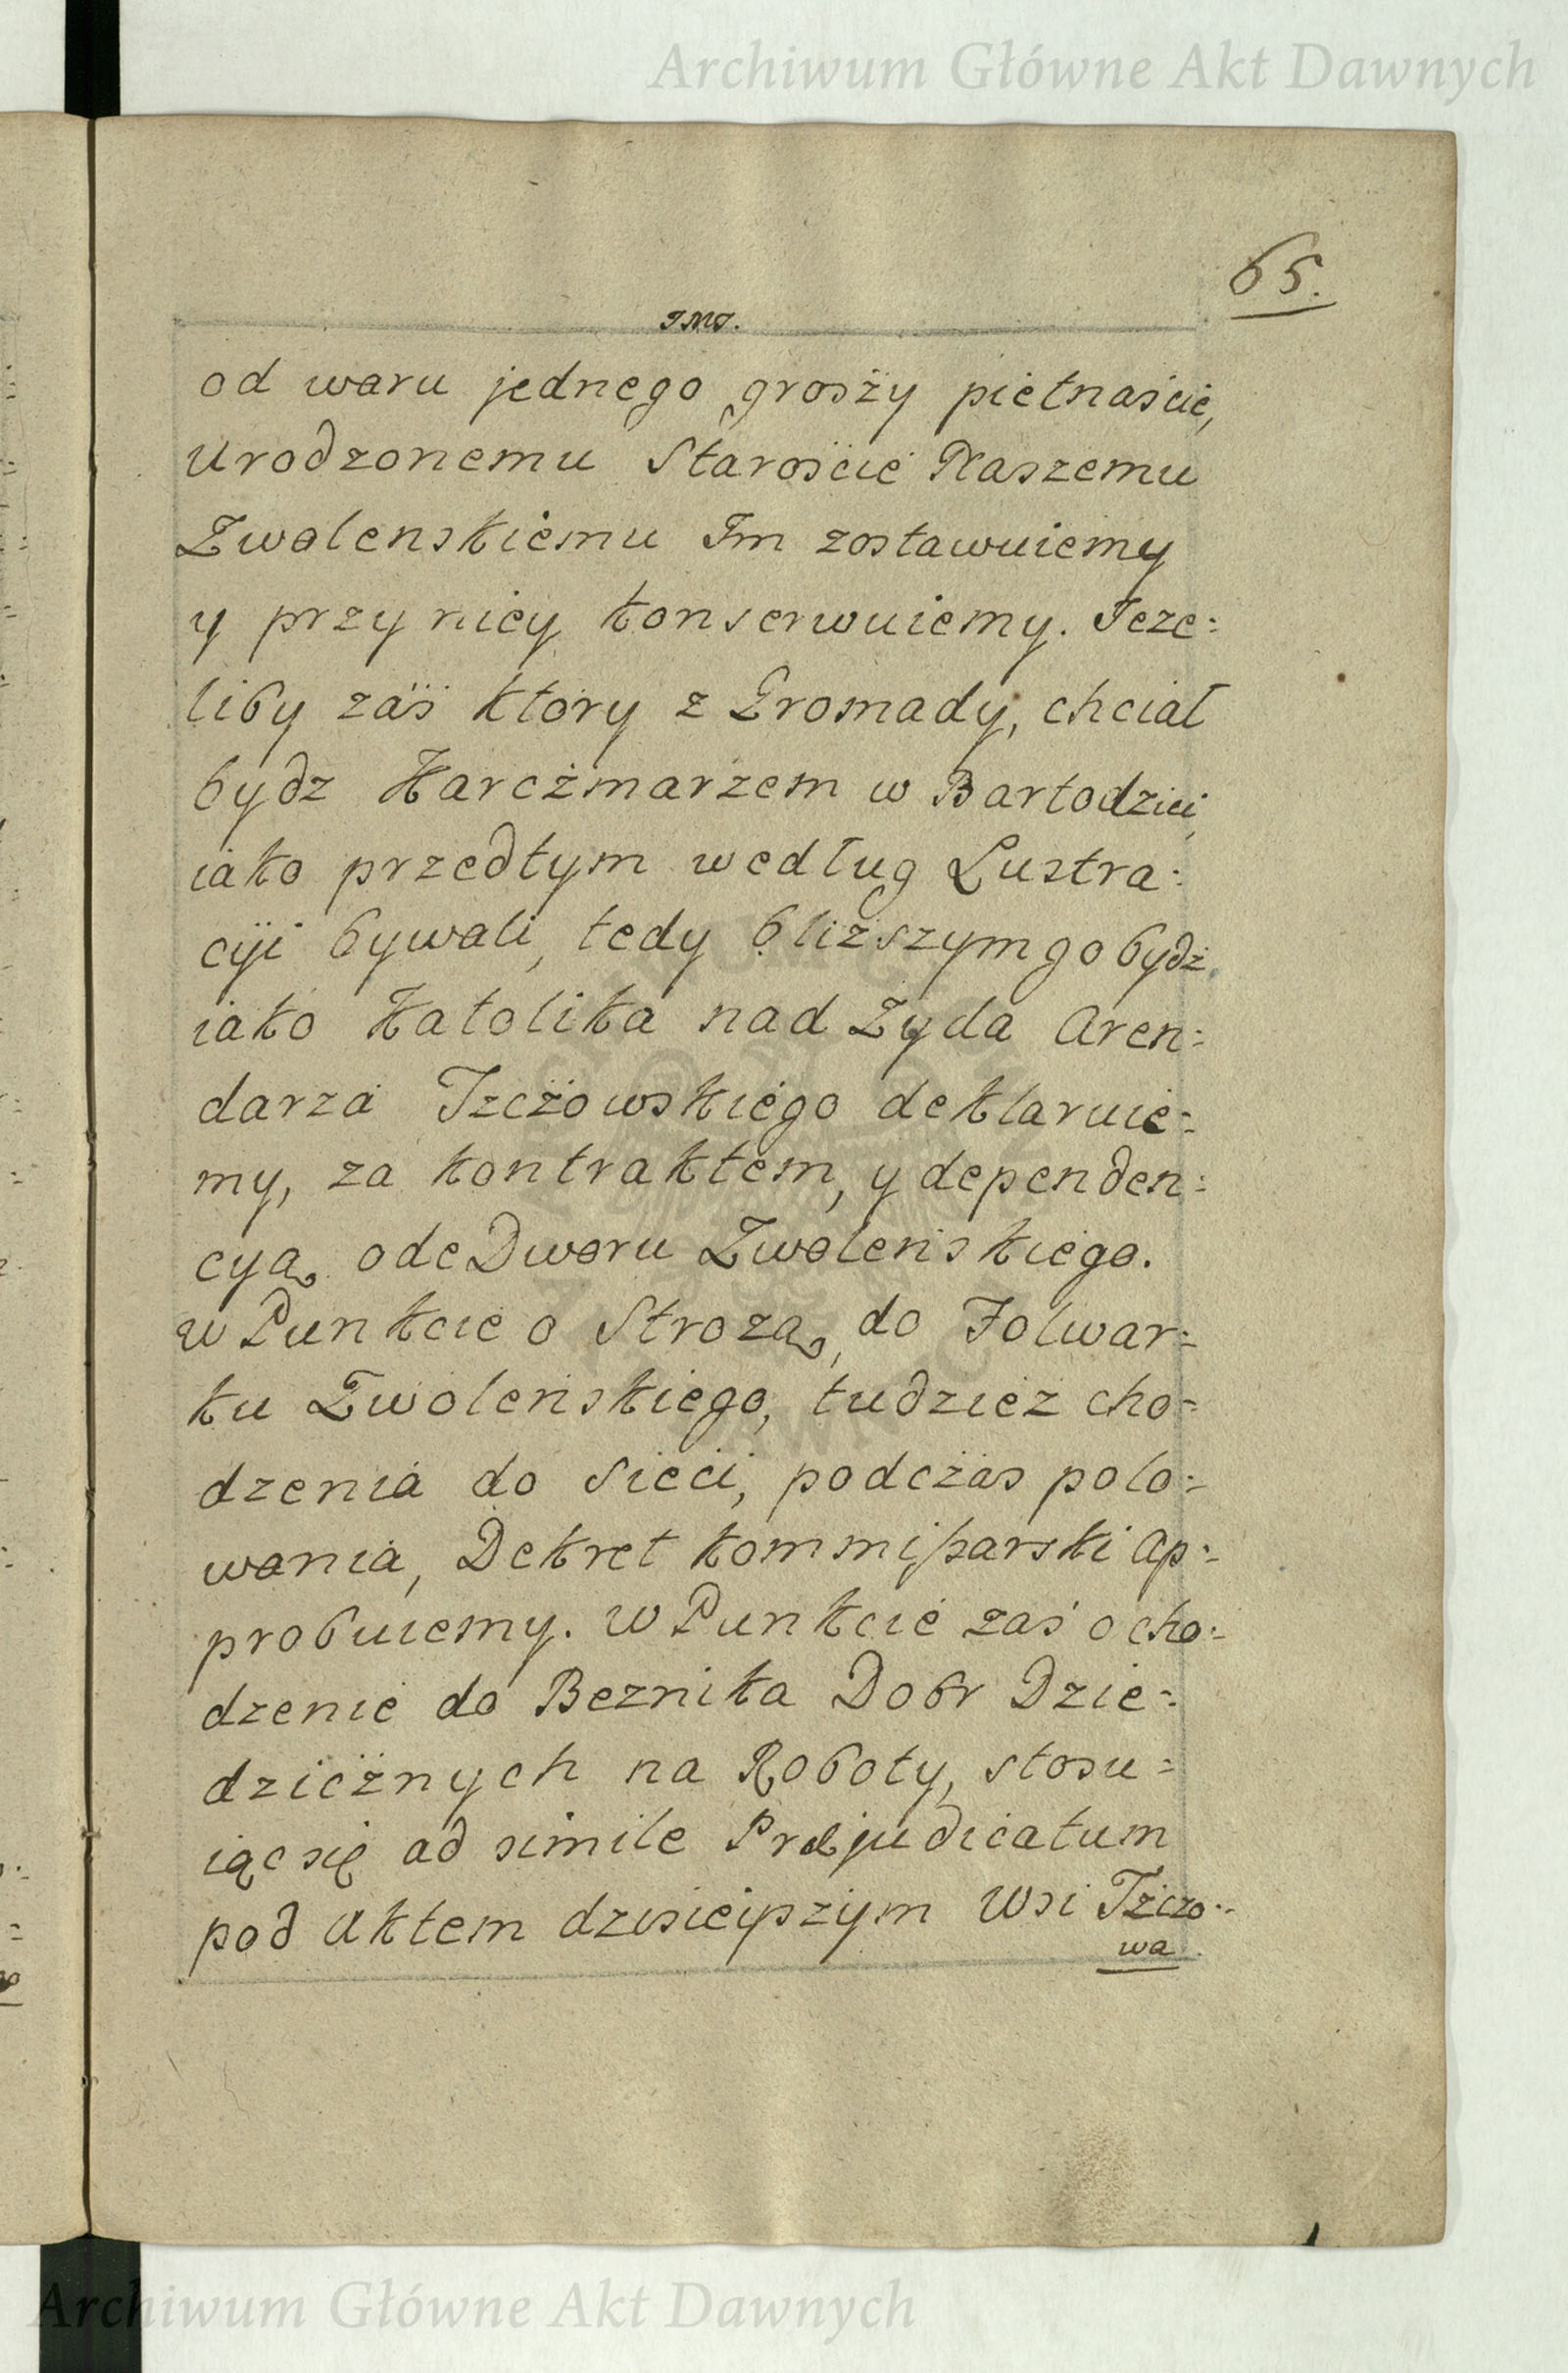 Archiwum Główne Akt Dawnych
65.
JMJ.
od waru jednego grosży piętnaście,
Urodzonemu Starośċie Naszemu
Zwolenskiemu Im zostawuiemy
y przy niey konserwuiemy. Ieze=
liby zaś ktory z Gromady, chciał
bydz Karcżmarzem w Bartodziei,
iako przedtym według Lustra=
cyi bywali, tedy bliższym go bydź
iako Katolika nad Zyda Aren=
darza Tzcżowskiego deklaruie=
my, za kontraktem, y dependen=
cyą ode Dworu Zwoleńskiego.
w Punkcie o Strożą, do Folwar=
ku Zwoleńskiego, tudzież cho=
dzenia do sieci, podcżas polo=
wania, Dekret kommißarski Ap=
probuiemy. w Punkcie zaś o cho=
dzenie do Beznika Dobr Dzie=
dzicżnych na Roboty, stosu=
iąc się ad simile Præjudicatum
pod Aktem dzisieyszym Wsi Tżczo=
wa
Archiwum Główne Akt Dawnych